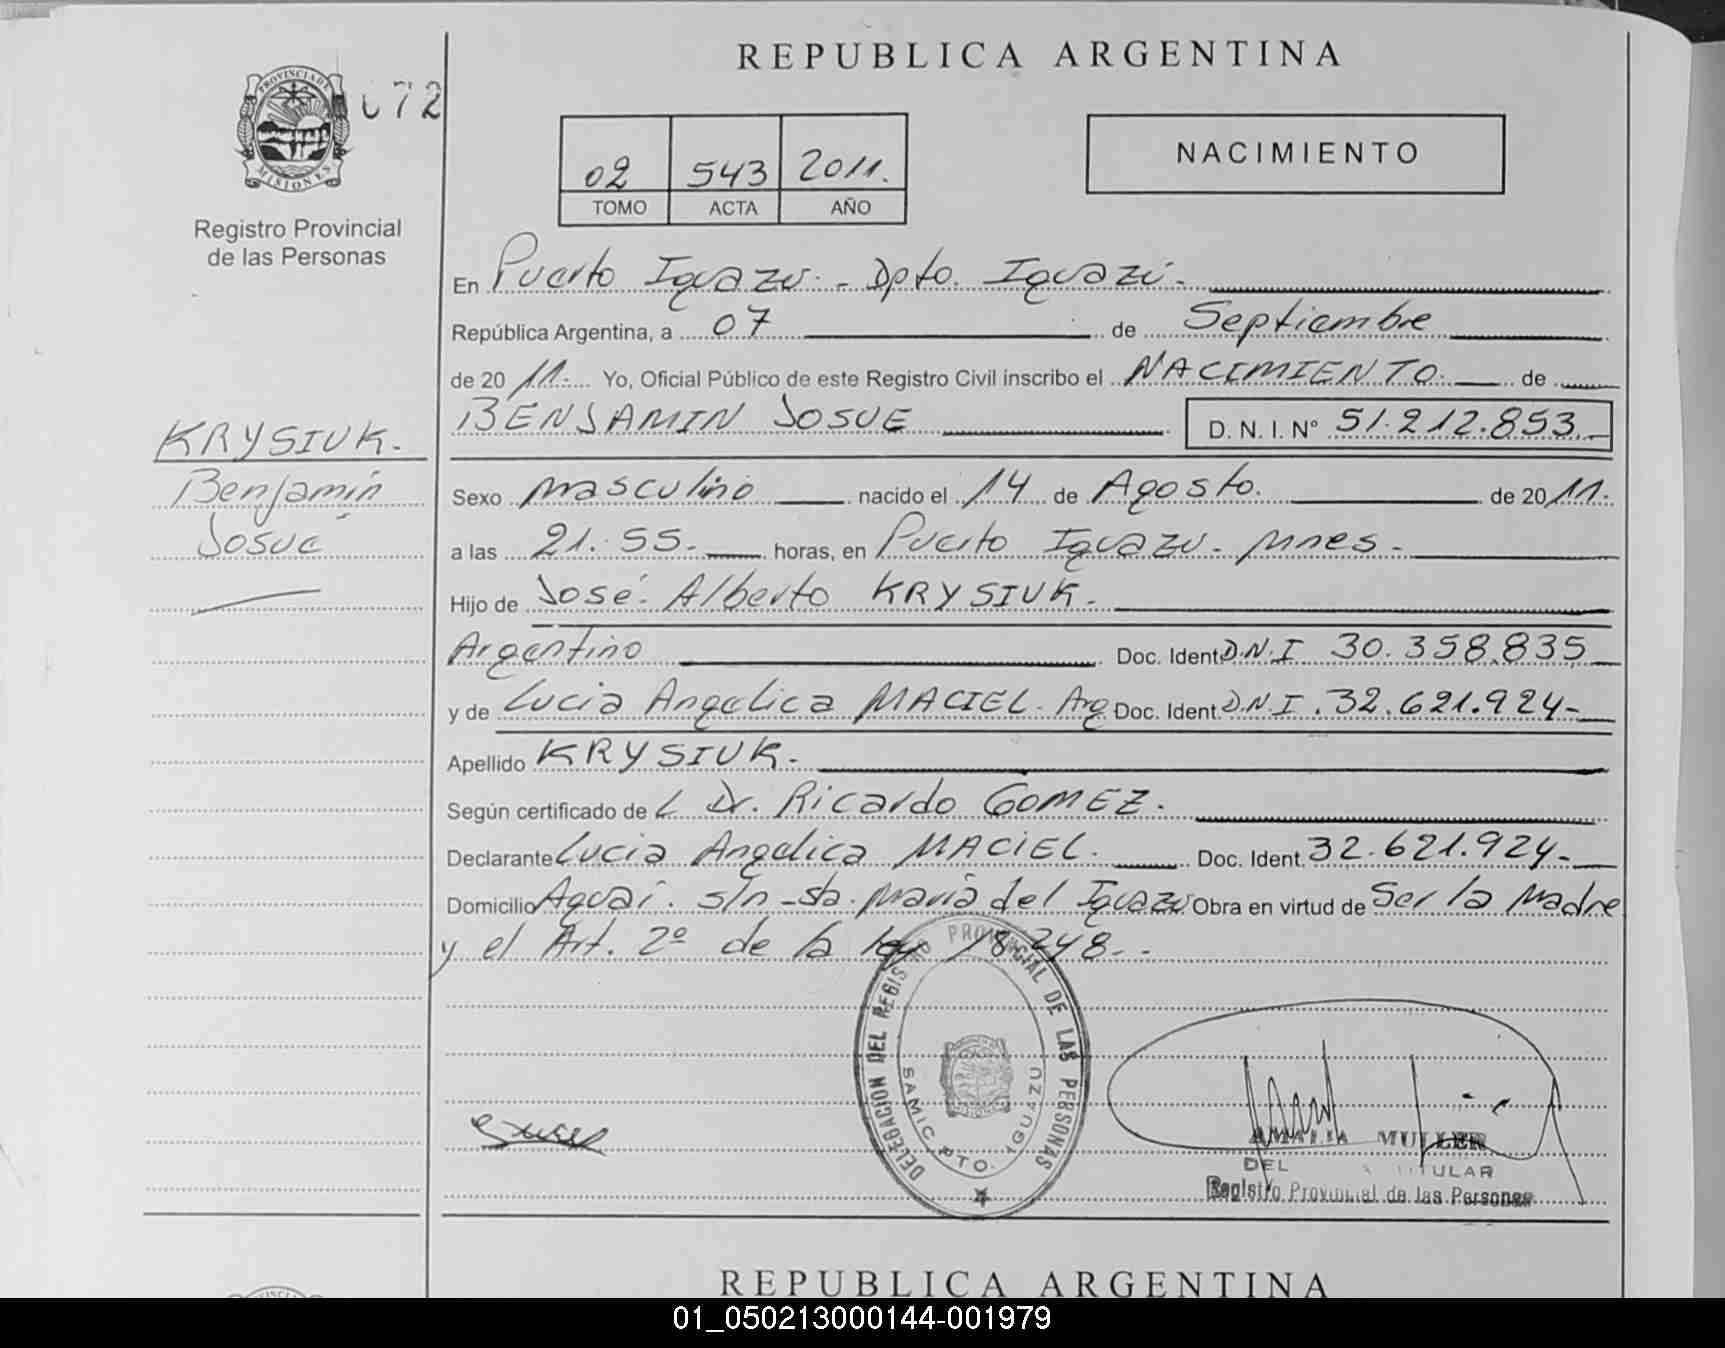 REPUBLICA ARGENTINA
PROVINCIA DE MISIONES
072
Registro Provincial
de las Personas
02 543 2011.
TOMO ACTA AÑO
NACIMIENTO
En Puerto Iguazú - Dpto. Iguazú -
República Argentina, a 07 de Septiembre
de 20 11.- Yo, Oficial Público de este Registro Civil inscribo el NACIMIENTO. de
BENJAMIN JOSUE D. N. I. Nº 51.212.853.-
KRYSIUK.
Benjamín
Josué
Sexo masculino nacido el 14 de Agosto. de 20 11.
a las 21.55.- horas, en Puerto Iguazú - Mnes -
Hijo de José Alberto KRYSIUK.-
Argentino Doc. Ident. D.N.I 30.358.835
y de Lucia Angelica MACIEL. Arg Doc. Ident. D.N.I. 32.621.924-
Apellido KRYSIUK.-
Según certificado de L Dr. Ricardo GOMEZ.
Declarante Lucia Angelica MACIEL. Doc. Ident. 32.621.924-
Domicilio Aguaí. s/n - Sta. María del Iguazú Obra en virtud de Ser la Madre
y el Art. 2º de la ley 18.248.-
DELEGACION DEL REGISTRO PROVINCIAL DE LAS PERSONAS
SAMIC PTO. IGUAZU
AMALIA MULLER
DEL TITULAR
Registro Provincial de las Personas
REPUBLICA ARGENTINA
01_050213000144-001979